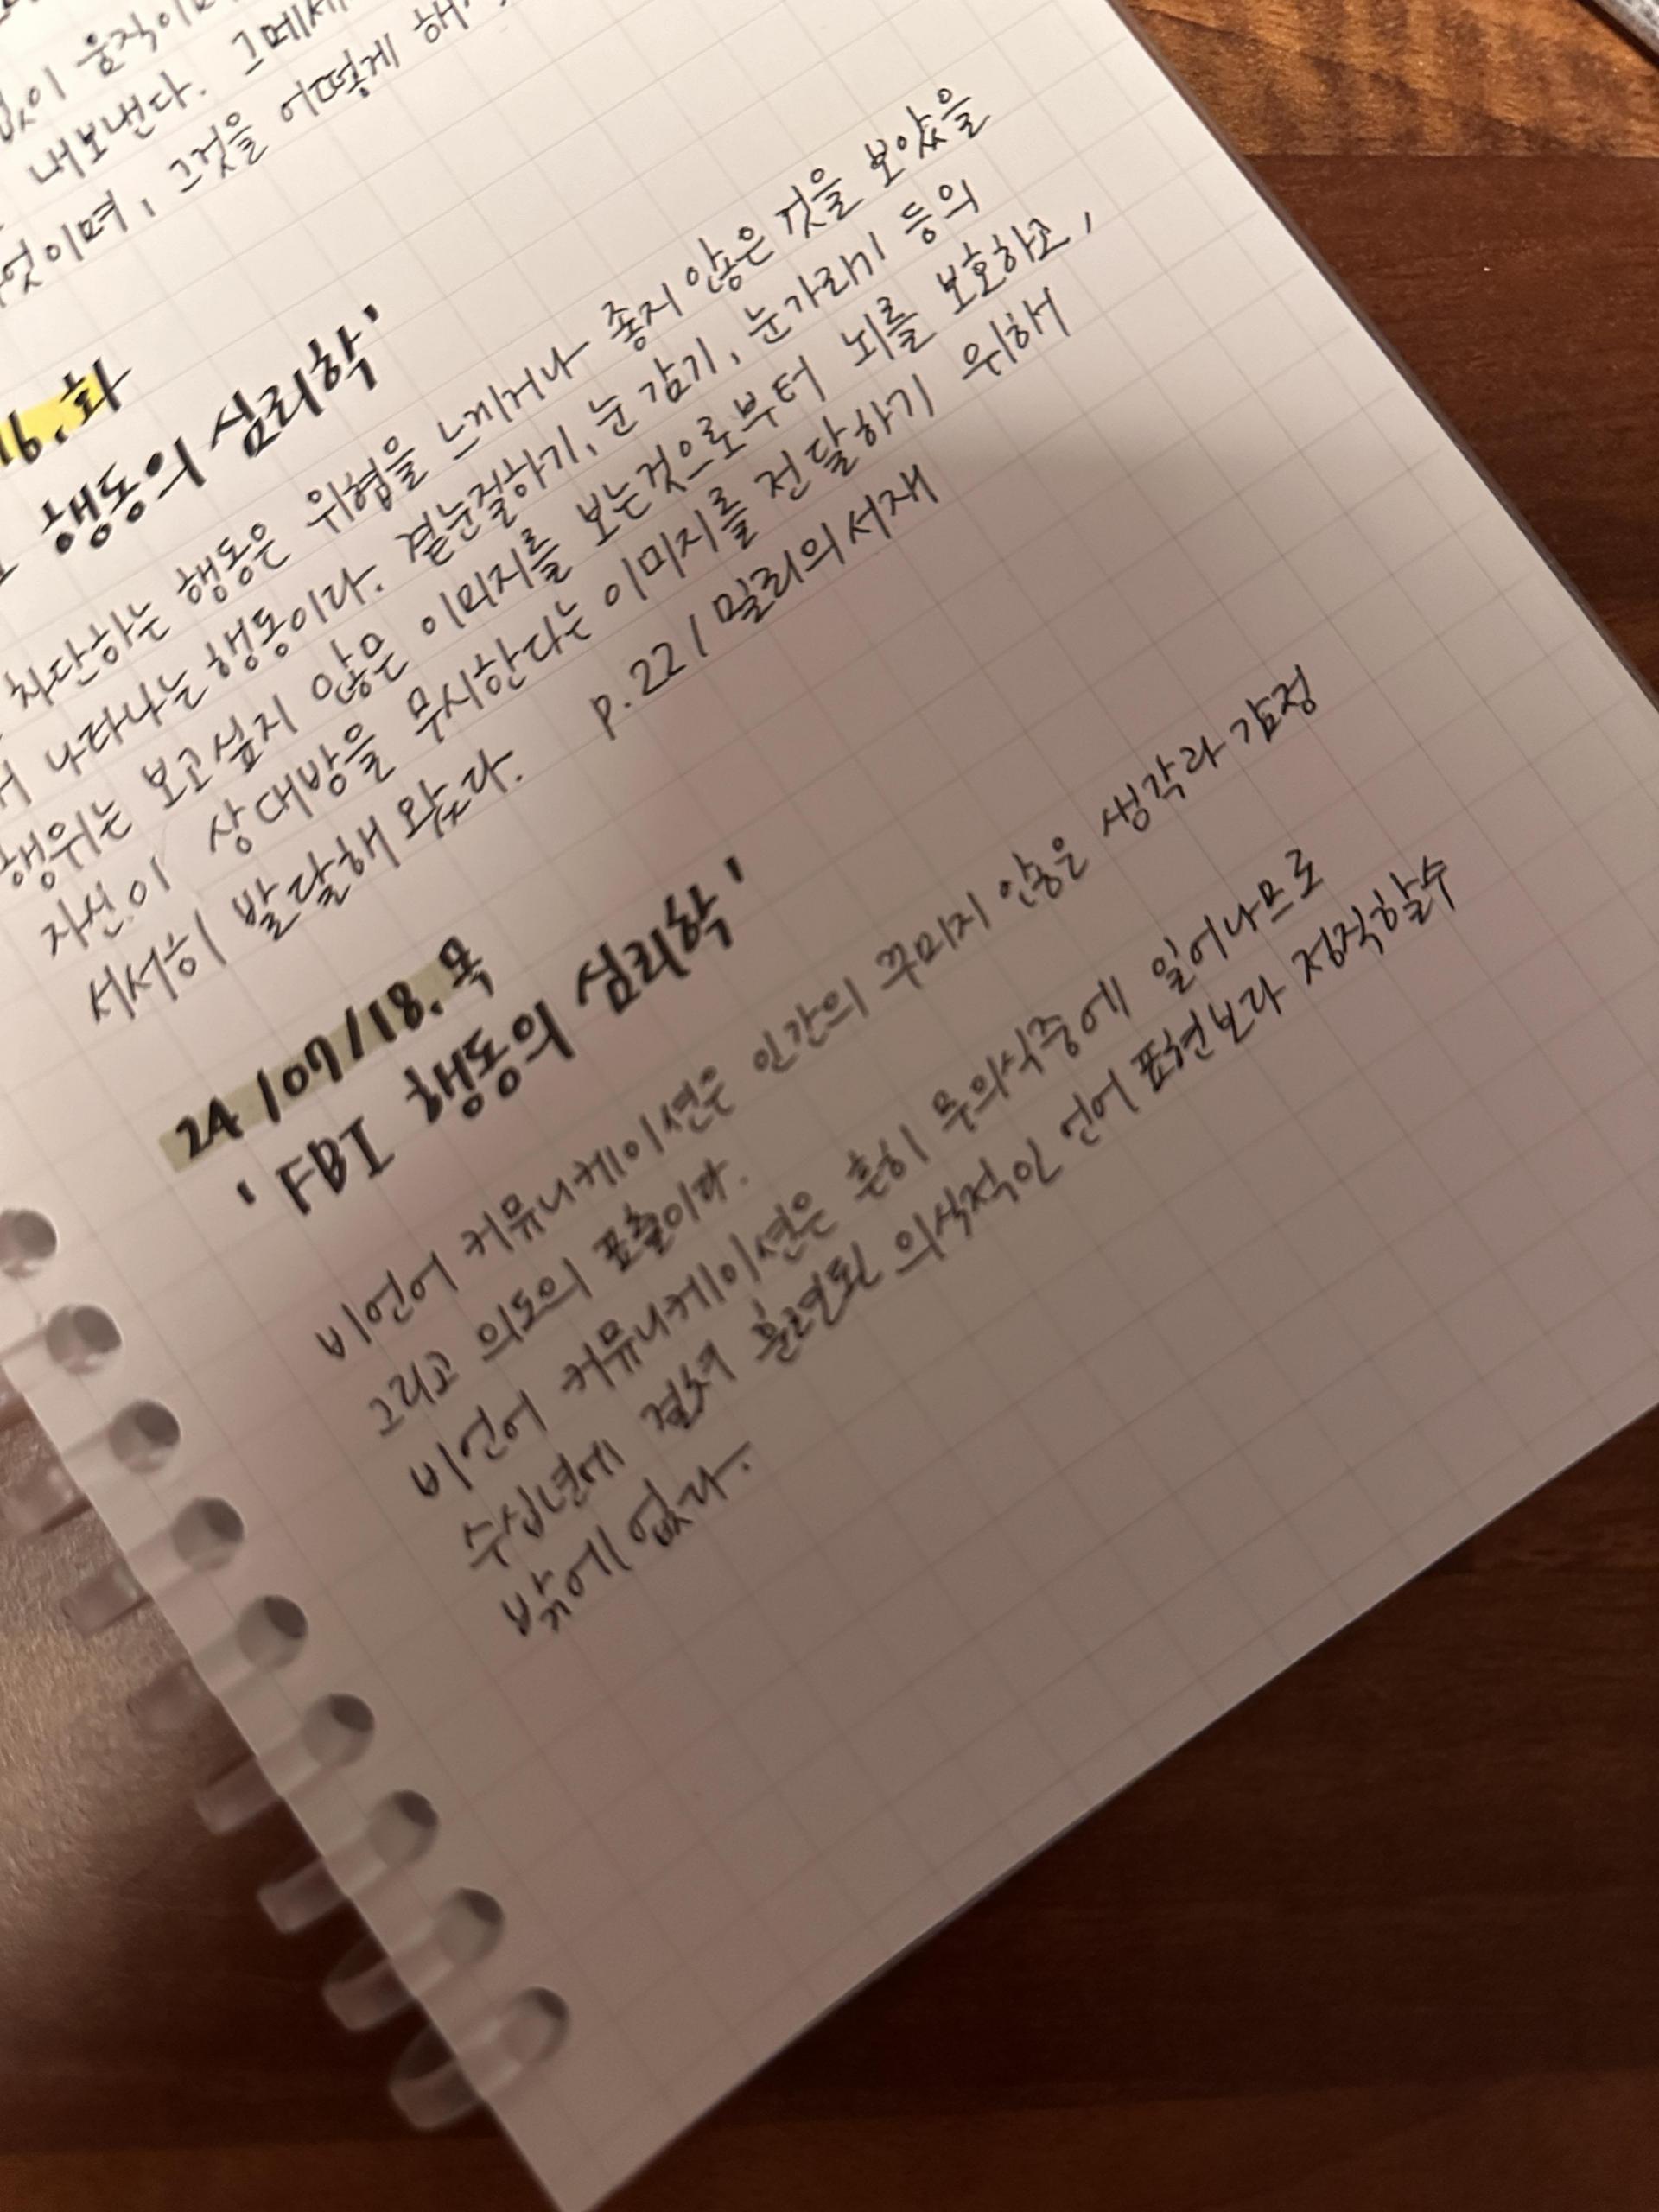 없이 움직이
내보낸다. 그에게
무엇이며, 그것을 어떻게 해
16.화
행동의 심리학'
차단하는 행동은 위협을 느끼거나 좋지 않은 것을 보았을
나타나는 행동이다. 곁눈질하기, 눈 감기, 눈가리기 등의
행위는 보고싶지 않은 이미지를 보는것으로부터 뇌를 보호하고,
자신이 상대방을 무시한다는 이미지를 전달하기 위해
서서히 발달해 왔다. p.221 밀리의서재
24/07/18.목
'FBI 행동의 심리학'
비언어 커뮤니케이션은 인간의 꾸미지 않은 생각과 감정
그리고 의도의 표출이다.
비언어 커뮤니케이션은 흔히 무의식중에 일어나므로
수십년에 걸쳐 훈련된 의식적인 언어 표현보다 정직할수
밖에 없다.